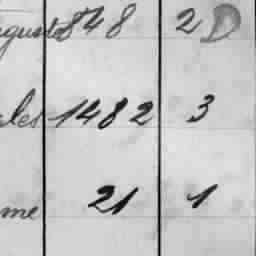 gusto 848 2 D
les 1482 3
me 21 1